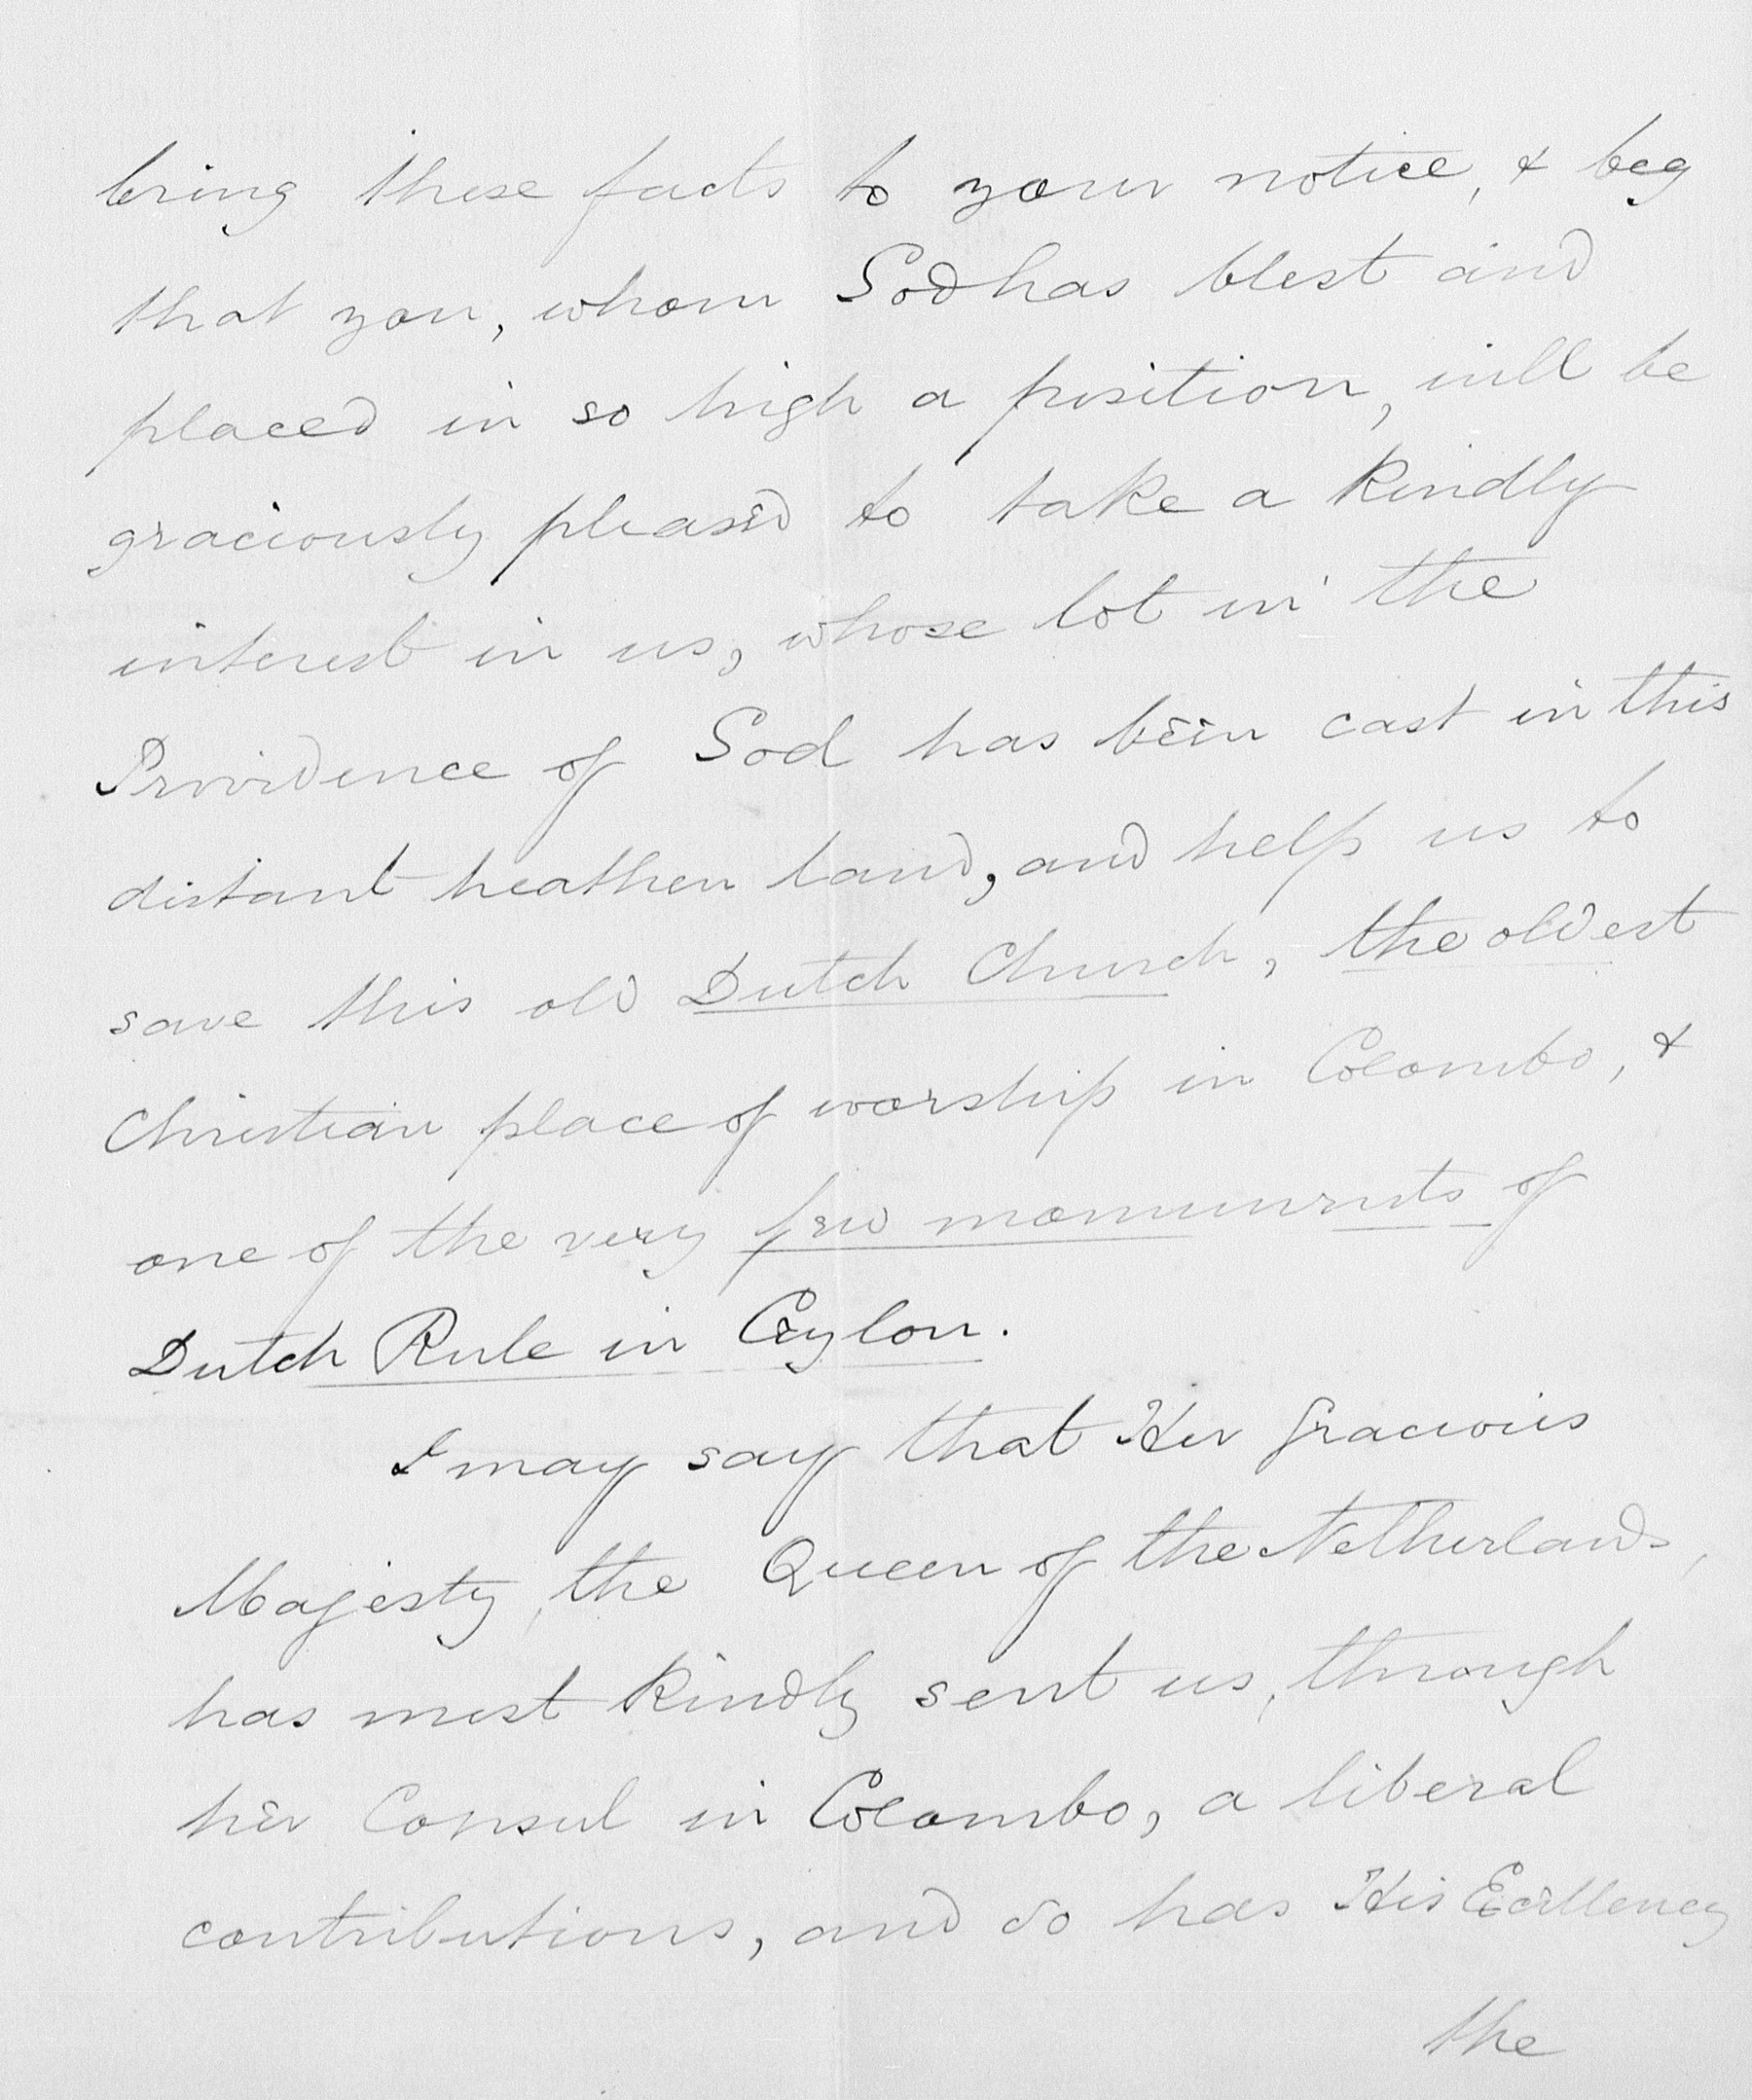 bring these facts to your notice, & beg
that you, whom God has blest and
placed in so high a position, will be
graciously pleased to take a kindly
interest in us, whose lot in the
Providence of God has been cast in this
distant heathen land, and help us to
save this old Dutch Church, the oldest
Christian place of worship in Colombo, &
one of the very few monuments of
Dutch Rule in Ceylon.
I may say that Her Gracious
Majesty, the Queen of the Netherlands,
has most kindly sent us, through
her Consul in Colombo, a liberal
contributions, and so has His Excellency
the